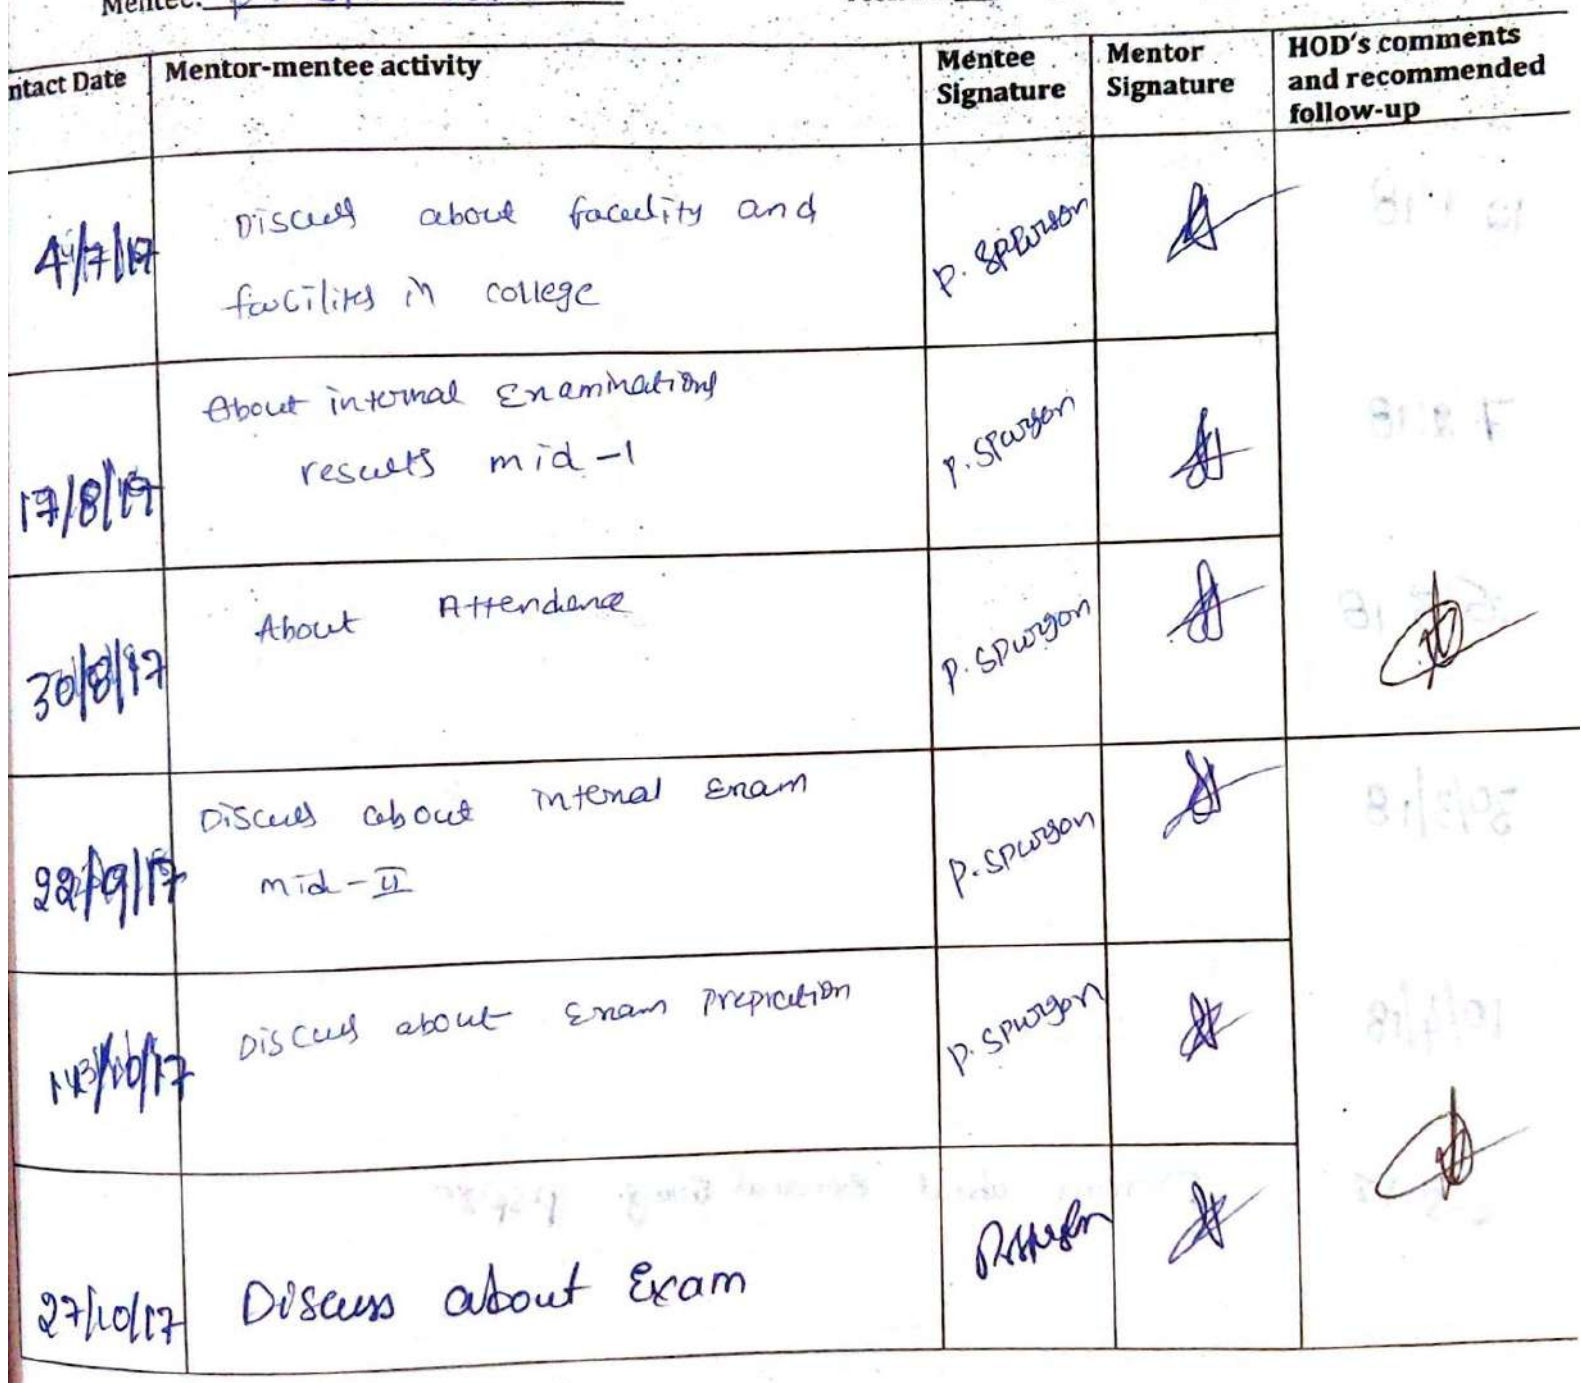 Mentee:
ntact Date
Mentor-mentee activity
Mentee
Signature
Mentor
Signature
HOD's comments
and recommended
follow-up
4/7/17
Discuss about faculity and
facilites in college
P. Spurson
17/8/17
About internal Examinations
results mid-1
P. Spurgon
30/8/17
About Attendance
P. Spurgon
22/9/17
Discuss about internal Exam
mid-II
P. Spurgon
/10/17
Discuss about Exam Prepration
P. Spurgon
27/10/17
Discuss about Exam